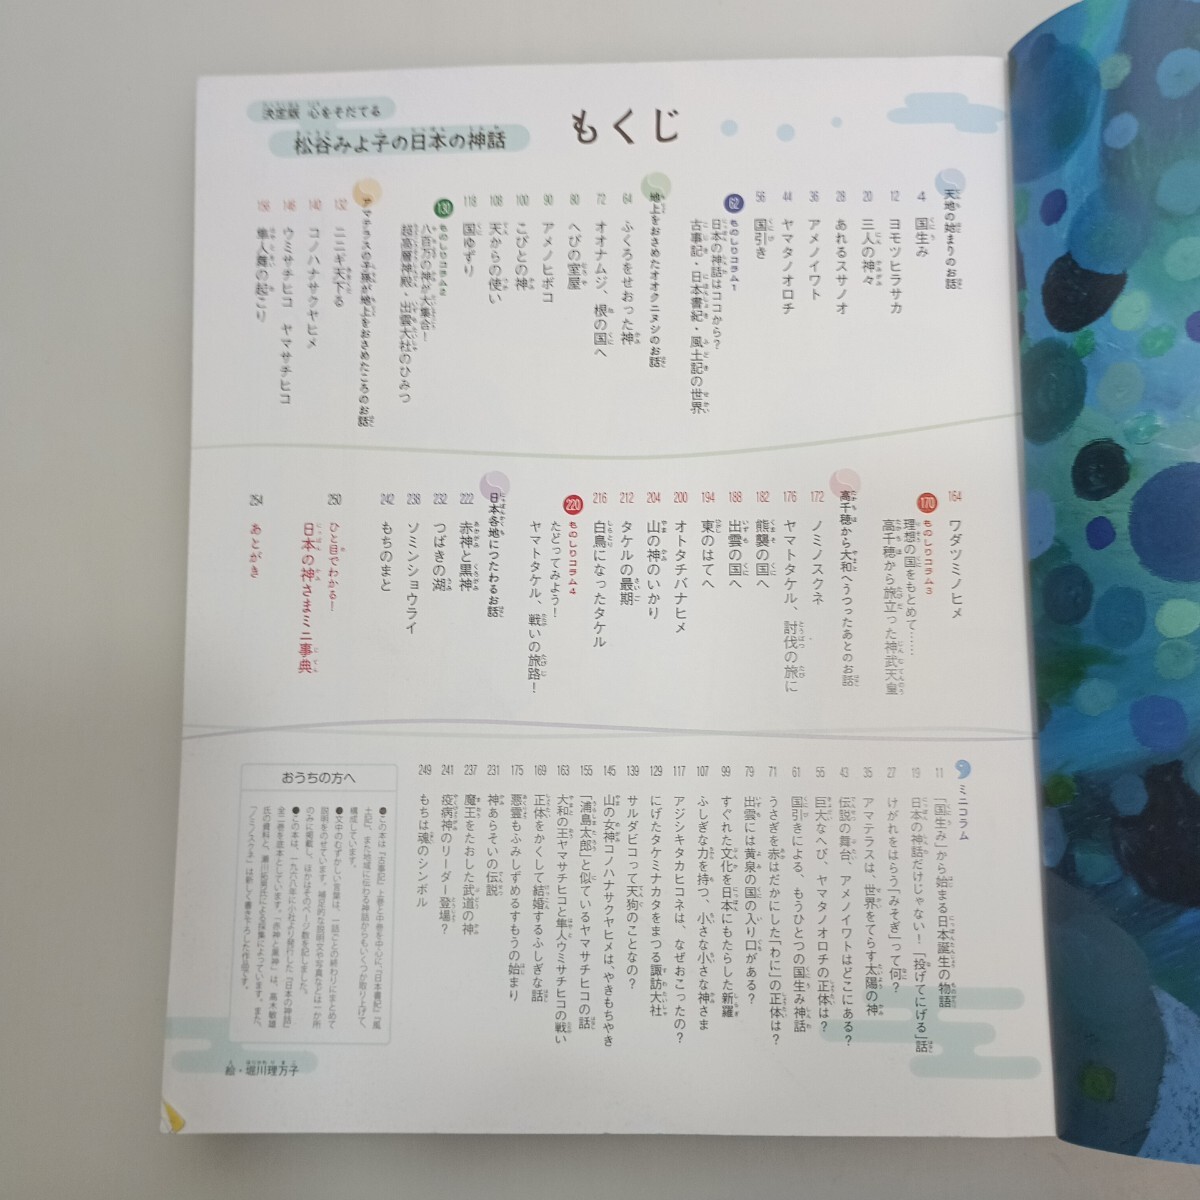 決定版 心をそだてる
松谷みよ子の日本の神話
もくじ
天地の始まりのお話
4 国生み
12 ヨモツヒラサカ
20 三人の神々
28 あれるスサノオ
36 アメノイワト
44 ヤマタノオロチ
56 国引き
62 ものしりコラム1
日本の神話はココから?
古事記・日本書紀・風土記の世界
地上をおさめたオオクニヌシのお話
64 ふくろをせおった神
72 オオナムジ、根の国へ
80 へびの室屋
90 アメノヒボコ
100 こびとの神
108 天からの使い
118 国ゆずり
130 ものしりコラム2
八百万の神が大集合!
超高層神殿、出雲大社のひみつ
アマテラスの子孫が地上をおさめたころのお話
132 ニニギ天下る
140 コノハナサクヤヒメ
146 ウミサチヒコ ヤマサチヒコ
156 隼人舞の起こり
164 ワダツミノヒメ
170 ものしりコラム3
理想の国をもとめて……
高千穂から旅立った神武天皇
高千穂から大和へうつったあとのお話
172 ノミノスクネ
176 ヤマトタケル、討伐の旅に
182 熊襲の国へ
188 出雲の国へ
194 東のはてへ
200 オトタチバナヒメ
204 山の神のいかり
212 タケルの最期
216 白鳥になったタケル
220 ものしりコラム4
たどってみよう!
ヤマトタケル、戦いの旅路!
日本各地につたわるお話
222 赤神と黒神
232 つばきの湖
238 ソミンショウライ
242 もちのまと
250 ひと目でわかる!
日本の神さまミニ事典
254 あとがき
ミニコラム
11 「国生み」から始まる日本誕生の物語
19 日本の神話だけじゃない!「投げてにげる」話
27 けがれをはらう「みそぎ」って何?
35 アマテラスは、世界をてらす太陽の神
43 伝説の舞台、アメノイワトはどこにある?
55 巨大なへび、ヤマタノオロチの正体は?
61 国引きによる、もうひとつの国生み神話
71 うさぎを赤はだかにした「わに」の正体は?
79 出雲には黄泉の国の入り口がある?
99 すぐれた文化を日本にもたらした新羅
107 ふしぎな力を持つ、小さな小さな神さま
117 アジシキタカヒコネは、なぜおこったの?
129 にげたタケミナカタをまつる諏訪大社
139 サルダビコって天狗のことなの?
145 山の女神コノハナサクヤヒメは、やきもちやき
155 「浦島太郎」と似ているヤマサチヒコの話
163 大和の王ヤマサチヒコと隼人ウミサチヒコの戦い
169 正体をかくして結婚するふしぎな話
175 悪霊もふみしずめるすもうの始まり
231 神あらそいの伝説
237 魔王をたおした武道の神
241 疫病神のリーダー登場?
249 もちは魂のシンボル
おうちの方へ
●この本は「古事記」上巻と中巻を中心に「日本書紀」「風
土記」、また地域に伝わる神話からもいくつか取り上げて、
構成しています。
●文中のむずかしい言葉は、一話ごとの終わりにまとめて
説明をのせています。補足的な説明文や写真などは一か所
のみに掲載し、ほかはそのページ数を記しました。
●この本は、一九六八年に小社より発行した「日本の神話」
全二巻を底本としています。「赤神と黒神」は、高木敏雄
氏の資料と、瀬川拓男氏による採集によっています。また、
「ノミノスクネ」は新しく書き下ろした作品です。
絵・堀川理万子